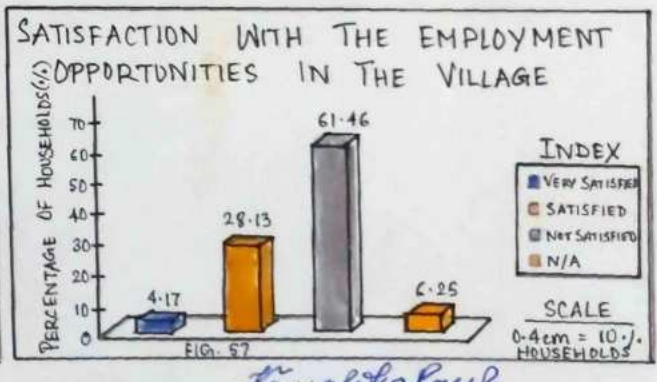 SATISFACTION WITH THE EMPLOYMENT
OPPORTUNITIES IN THE VILLAGE
PERCENTAGE OF HOUSEHOLDS(%)
70
60
50
40
30
20
10
0
4.17
28.13
61.46
6.25
FIG. 57
INDEX
VERY SATISFIED
SATISFIED
NOT SATISFIED
N/A
SCALE
0.4cm = 10%
HOUSEHOLDS